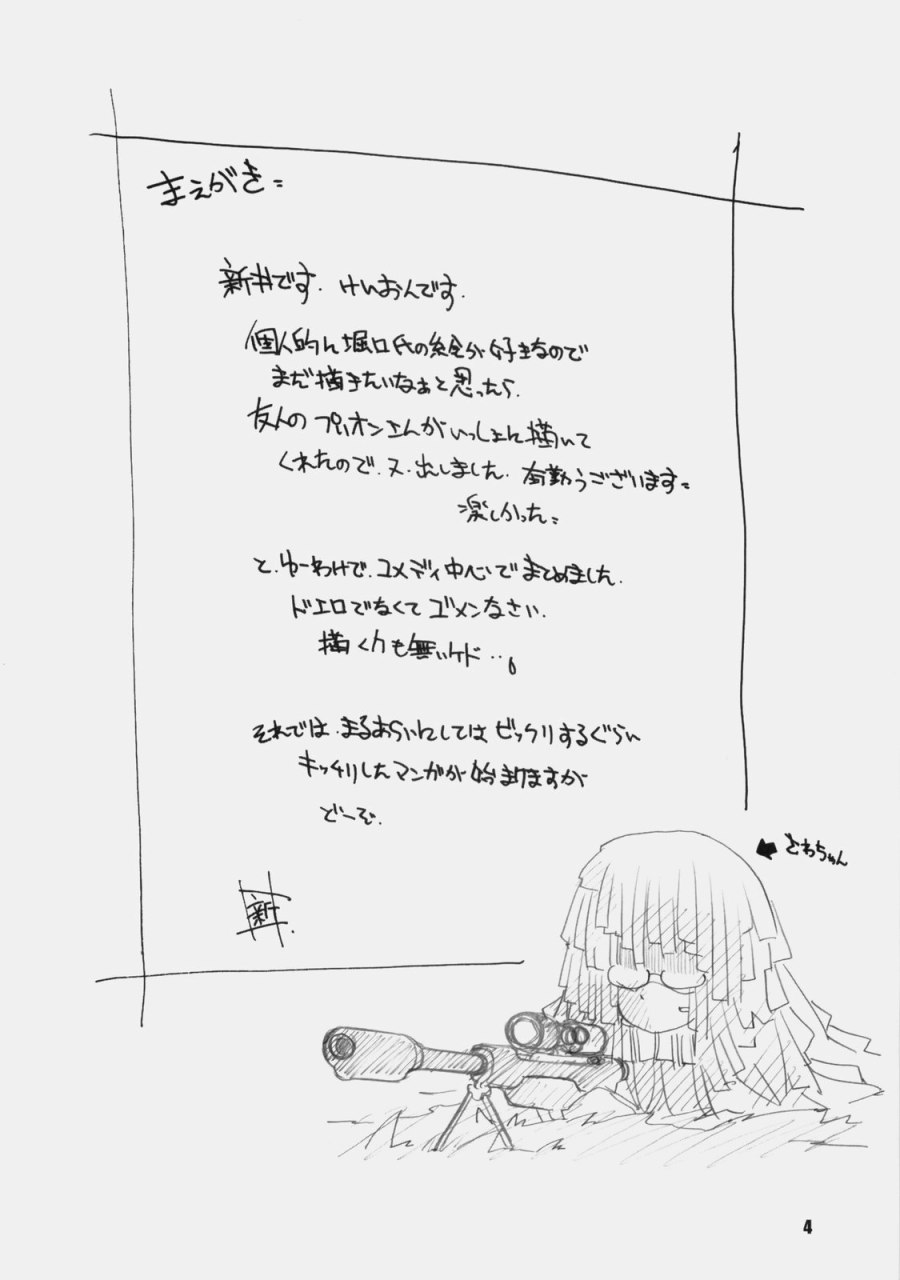 まえがき=
新井です. けいおんです.
個人的に堀口氏の絵が好きなので
まだ描きたいなぁと思ったら.
友人の プリオンさんがいっしょに描いて
くれたので.又.出しました. 有勤うございます=
楽しかった=
と.ゆーわけで.コメディ中心でまとめました.
ドエロでなくて ゴメンなさい.
描く力も無いケド・・。
それでは.まるあらいにしては ビックリするぐらい
キッチリしたマンガが始まりますが
どーぞ.
新.
とわちゃん
4